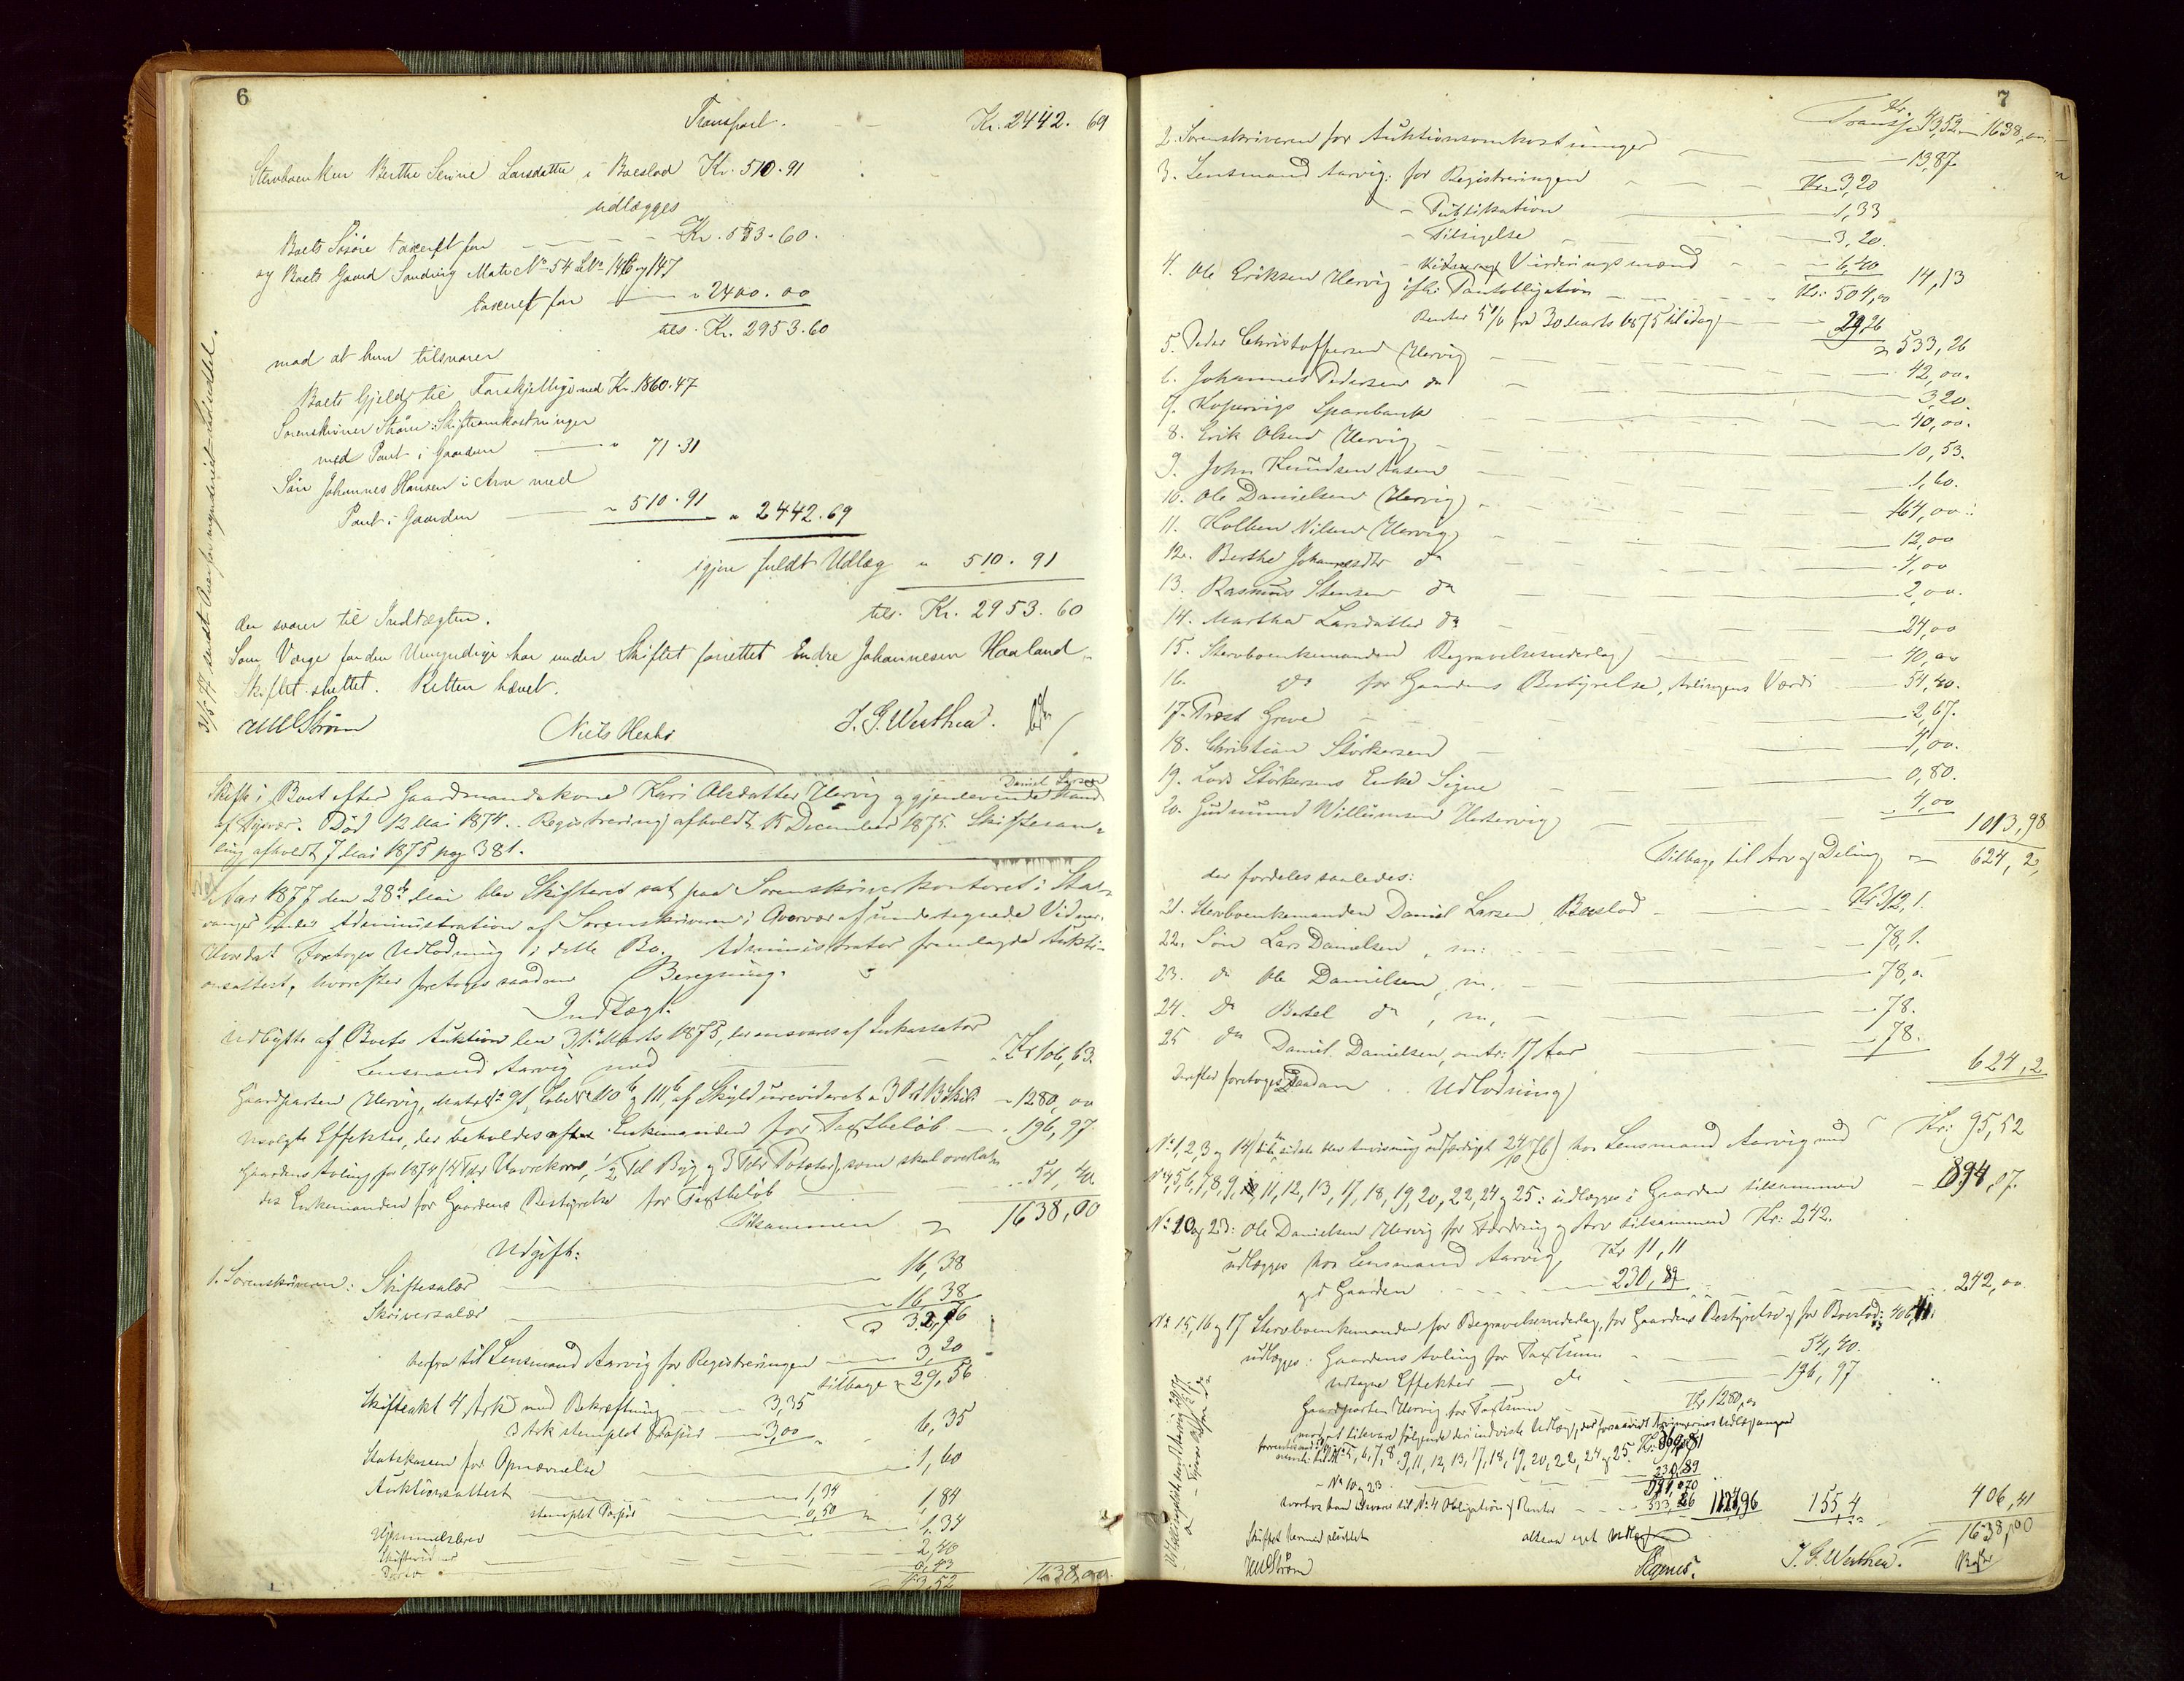 6
Transport. Kr. 2442. 69
Stervboenken Berthe Serine Larsdatter i Boeslod Kr. 510.91
udlægges
Boets Løsøre taxeret for Kr. 553.60.
og Boets Gaard Sandvig Matr No 54 LNo 146 og 147
taxeret for " 2400.00
tils. Kr. 2953.60
mod at hun tilsvarer
Boets Gjeld til Forskjellige med Kr. 1860.47
Sorenskriver Strøm: Skifteomkostninger
med Pant i Gaarden " 71.31
Søn Johannes Hansen i Arv med
Pant i Gaarden " 510.91 " 2442.69
igjen fuldt Udlæg " 510.91
tils. Kr. 2953.60
der svarer til Indtægten.
Som Værge for den Umyndige har under Skiftet forrettet Endre Johannesen Haaland.
Skiftet sluttet. Retten hævet.
Strøm Niels Henbo J. G. Werthea.
Skifte i Boet efter Gaardmandskone Kari Olsdatter Hervig og gjenlevende Mand Daniel Larsen
af Tysvær. Død 12 Mai 1874. Registrering afholdt 15 December 1875. Skiftesam-
ling afholdt 7 Mai 1875 pag 381.
Aar 1877 den 28de Mai blev Skifteret sat paa Sorenskriverkontoret i Sta-
vanger under Administration af Sorenskriveren i Overvær af undertegnede Vidner.
Hvordat foretoges Udlodning i dette Bo. Administrator fremlagde Aukti-
onsattest, hvorefter foretoges saadan Beregning.
Indtægt.
Udbytte af Boets Auktion den 31te Marts 1875, der ansvares af Inkassator
Lensmand Aarvig med Kr 106,63.
Gaardparten Hervig, Matr No 91, Løbe No 110 b og 111 b, af Skyld urevideret 3 Ort 13 Skil. " 1280,00
Usolgte Effekter, der beholdes af Enkemanden for Taxtbeløb " 196,97.
Gaardens Avling for 1874 (4 Tdr Havrekorn, 1/2 Td Byg og 3 Tdr Poteter), som skal overlates
det Enkemanden for Gaardens Bestyrelse for Taxtbeløb " 54,40.
Tilsammen " 1638,00
Udgift:
1. Sorenskriveren: Skiftesalær 16,38
Skriversalær " 16,38
" 32,76
herfra til Lensmand Aarvig for Registreringen 3,20
tilbage " 29,56
Skifteakt 4 Ark med Bekræftning 3,35
3 Ark stemplet Papir 3,00 " 6,35
Statskassen for Opnævnelse 1,60
Auktionsattest 1,34
stemplet Papir 0,50 " 1,84
Hjemmelsbrev 1,34
Skiftevidner 2,40
Porto 0,43
43,52 1638,00
7
Transp. Kr 43,52 1638,00
2. Sorenskriveren for Auktionsomkostninger 13,87
3. Lensmand Aarvig: for Registreringen Kr. 3,20
- Publikation 1,33
- Tilsigelse 3,20.
- Vurderingsmænd 6,40 14,13
4. Ole Eriksen Hervig ifl: Pantobligation Kr: 504,00
Renter 5% fra 30 Marts 1875 til idag 29,26 " 533,26
5. Peder Christoffersen Hervig 42,00.
6. Johannes Pedersen do 3,20.
7. Kopervigs Sparebank 40,00.
8. Erik Olsen Hervig 10,53.
9. John Knudsen Aasen 1,60.
10. Ole Danielsen Hervig 164,00.
11. Kolben Nilsen Hervig 12,00
12. Berthe Johannesdtr do 4,00
13. Rasmus Stensen do 2,00.
14. Martha Larsdatter do 24,00
15. Stervboenkemanden Begravelsesvederlag 40,00
16. do for Gaardens Bestyrelse, Avlingens Værdi 54,40.
17. Provst Greve 2,67.
18. Christian Størkersen 4,00.
19. Lars Størkersens Enke Signe 0,80.
20. Gudmund Willumsen Hervig 4,00 1013,98
Tilbage til Arv og Deling " 624,2,
der fordeles saaledes:
21. Stervboenkemanden Daniel Larsen, Boeslod Kr 312,1.
22. Søn Lars Danielsen, m: 78,1.
23. do Ole Danielsen, m. 78,0.
24. do Bertel do, m, 78.
25 do Daniel Danielsen, omtr. 17 Aar 78. 624,2
Derefter foretoges saadan Udlodning
No 1, 2, 3 og 14 hos Lensmand Aarvig med Kr: 95,52
No 4,5,6,7,8,9, 11, 12, 13, 17, 18, 19, 20, 22, 24 og 25: udlægges i Gaarden tilsammen 894,07.
No 10 og 23: Ole Danielsen Hervig for Fordring og Arv tilsammen Kr: 242.
udlægges hos Lensmand Aarvig, Kr 11,11
og i Gaarden 230,89 242,00.
No 15, 16 og 17 Stervboenkemanden for Begravelsesvederlag, for Gaardens Bestyrelse og for Boeslod: 406,41.
udlægges: Gaardens Avling for Taxtsum 54,40.
Udtagne Effekter do 196,97
Gaardparten Hervig for Taxtsum Kr 1280,00
mod at tilsvare følgende
No 5, 6, 7, 8, 9, 11, 12, 13, 17, 18, 19, 20, 22, 24 og 25. Kr: 360,81
- No 10 og 23 230,89
hvorhos han svarer til No 4 Obligation og Renter 533,26 1124,96 155,4 406,41
Skiftet hermed sluttet altsaa eget Udlæg 1638,00
Strøm J. G. Werthea.